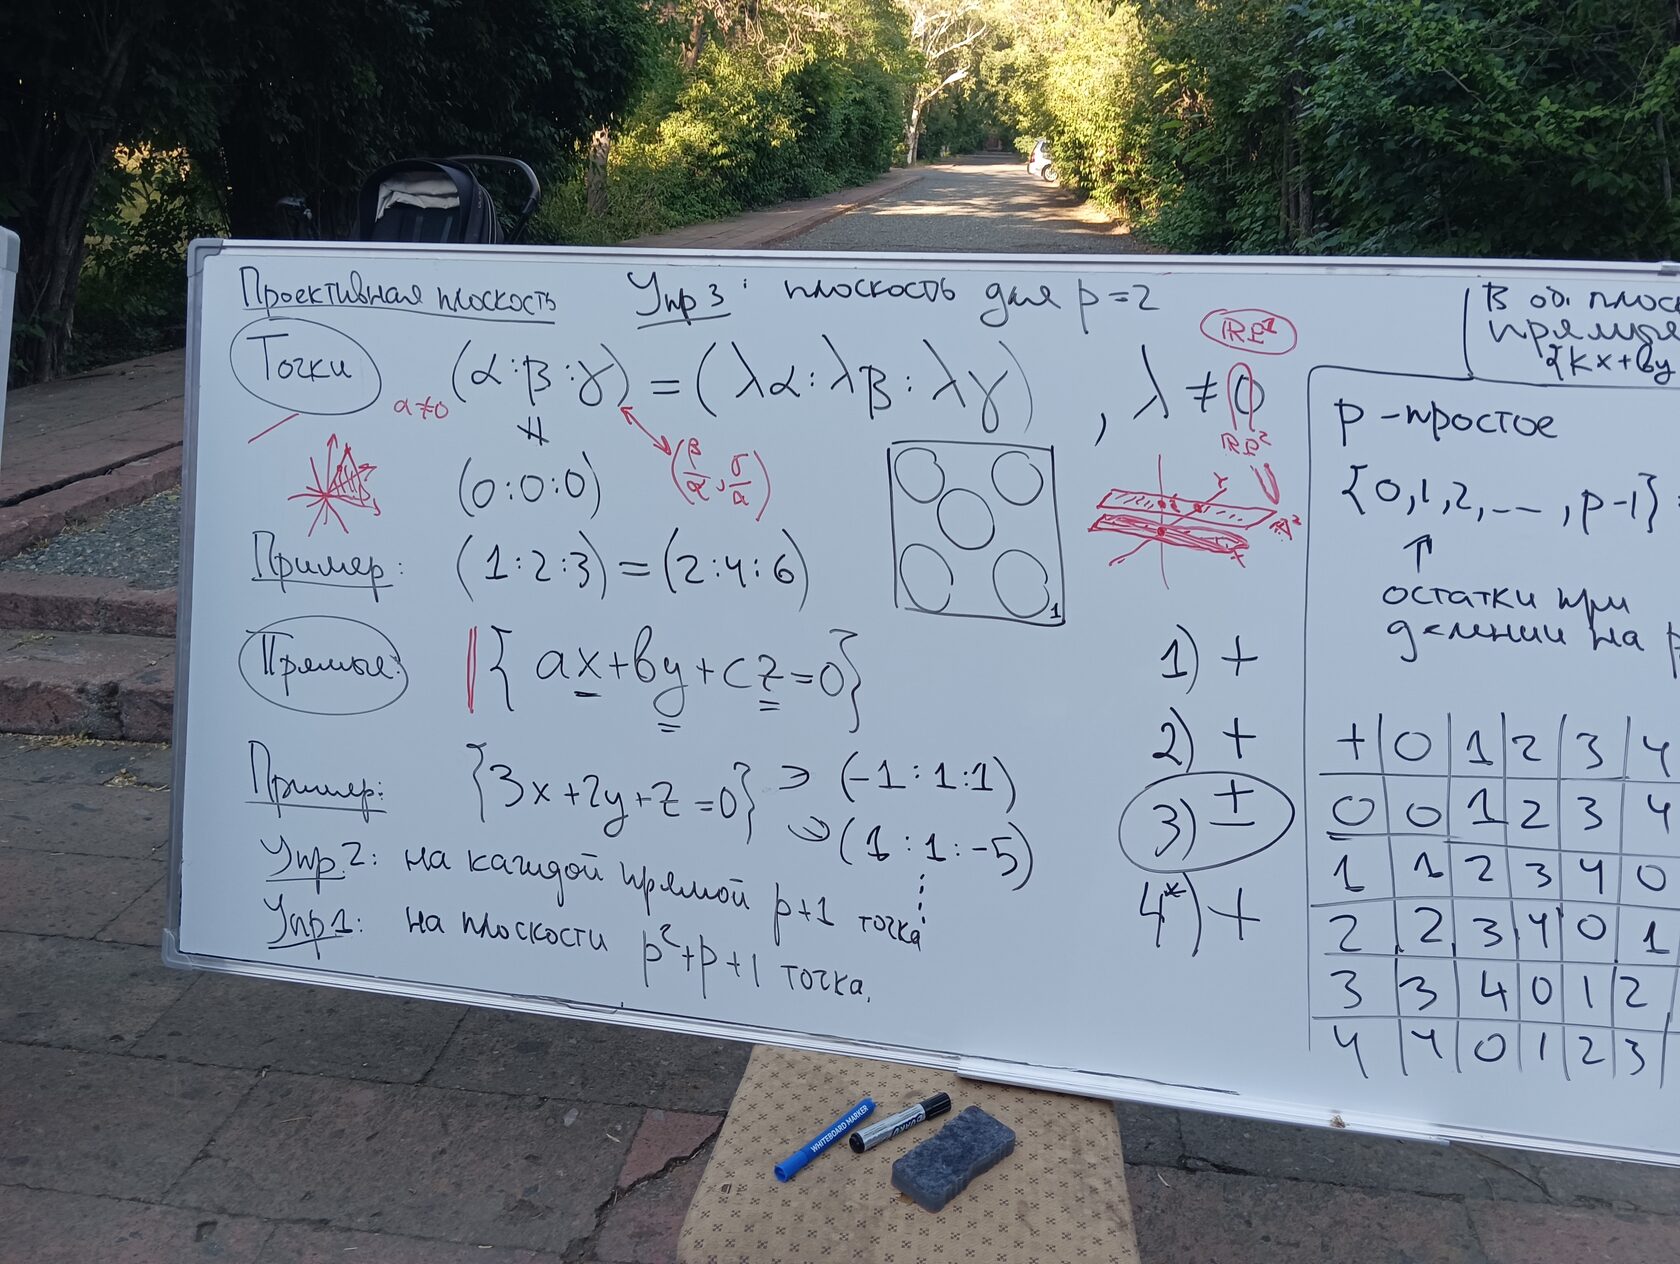 Проективная плоскость
Упр 3: плоскость для p=2
Точки
(α:β:γ) = (λα:λβ:λγ), λ ≠ 0
α≠0
(0:0:0)
(β/α, γ/α)
ℝP¹
ℝP²
1
Пример: (1:2:3) = (2:4:6)
Прямые:
{ax+by+cz=0}
Пример: {3x+2y+z=0} ∋ (-1:1:1)
∋ (1:1:-5)
Упр.2: на каждой прямой p+1 точка
Упр1: на плоскости p²+p+1 точка.
1) +
2) +
3) ±
4*) +
В об. плос
{kx+by
p - простое
{0,1,2,...,p-1}
↑
остатки при
делении на p
+ 0 1 2 3 4
0 0 1 2 3 4
1 1 2 3 4 0
2 2 3 4 0 1
3 3 4 0 1 2
4 4 0 1 2 3
WHITEBOARD MARKER